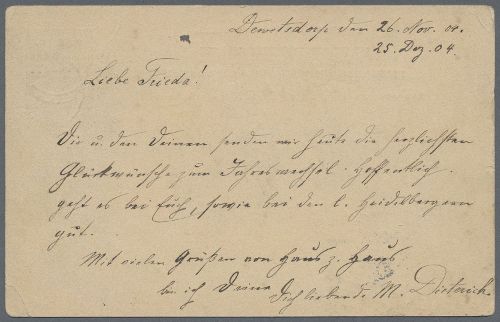 Dewetsdorp den 26. Nov. 04.
25. Dez. 04.
Liebe Frieda!
Dir u. den Deinen senden wir heute die herzlichsten
Glückwünsche zum Jahreswechsel. Hoffentlich
geht es bei Euch, sowie bei den l. Heidelbergern
gut.
Mit vielen Grüßen von Haus z. Haus
bin ich Deine Dich liebende M. Dieterich